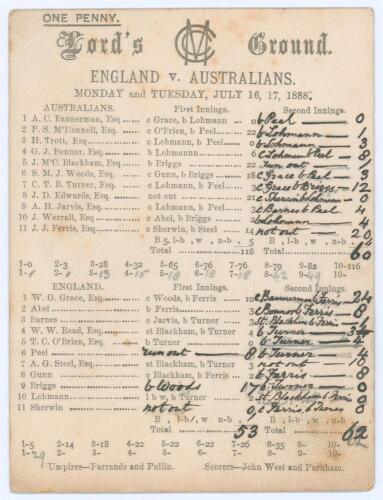 ONE PENNY.
Lord's MCC Ground.
ENGLAND v. AUSTRALIANS.
MONDAY and TUESDAY, JULY 16, 17, 1888.
AUSTRALIANS. First Innings. Second Innings.
1 A. C. Bannerman, Esq. c Grace, b Lohmann 0 b Peel — 0
2 P. S. M'Donnell, Esq. c O'Brien, b Peel 22 b Lohmann — 1
3 H. Trott, Esq. c Lohmann, b Peel 0 b Lohmann — 3
4 G. J. Bonnor, Esq. b Lohmann c Lohmann b Peel — 8
5 J. M'C. Blackham, Esq. b Briggs 22 run out —
6 S. M. J. Woods, Esq. c Gunn, b Briggs 18 c Grace b Peel — 3
7 C. T. B. Turner, Esq. c Lohmann, b Peel 3 c Grace b Briggs — 12
8 J. D. Edwards, Esq. not out 21 c Sherwin b Lohmann 0
9 A. H. Jarvis, Esq. c Lohmann, b Peel 3 c Barnes b Peel 4
10 J. Worrall, Esq. c Abel, b Briggs 2 b Lohmann — 4
11 J. J. Ferris, Esq. c Sherwin, b Steel 14 not out — 20
B 5, l-b , w , n-b , 5 B , l-b , w , n-b , 4
Total 116 Total 60
1-0 2-3 3-28 4-32 5-65 6-76 7-79 8-79 9-82 10-116
1-1 2-1 3-13 4-15 5-18 6-18 7-18 8-42 9-49 10-
ENGLAND. First Innings. Second Innings.
1 W. G. Grace, Esq. c Woods, b Ferris 10 c Bannerman b Ferris 24
2 Abel b Ferris 3 c Bonnor b Ferris — 8
3 Barnes c Jarvis, b Turner 3 st Blackham b Ferris — 1
4 W. W. Read, Esq. st Blackham, b Turner 4 b Turner —
5 T. C. O'Brien, Esq. b Turner 0 b Turner — 4
6 Peel run out — 8 b Turner — 4
7 A. G. Steel, Esq. st Blackham, b Turner 3 not out — 10
8 Gunn c Blackham, b Ferris 2 b Ferris — 8
9 Briggs b Woods 17 b Turner — 0
10 Lohmann l b w, b Turner 2 st Blackham b Ferris 0
11 Sherwin not out 0 c Ferris, b Turner
B , l-b , w , n-b , B , l-b , w , n-b ,
Total 53 Total 62
1-5 2-14 3-18 4-22 5-22 6-22 7-26 8-35 9- 10-
1-29 2- 3- 4- 5- 6- 7- 8- 9- 10-
Umpires—Farrands and Pullin. Scorers—John West and Parnham.